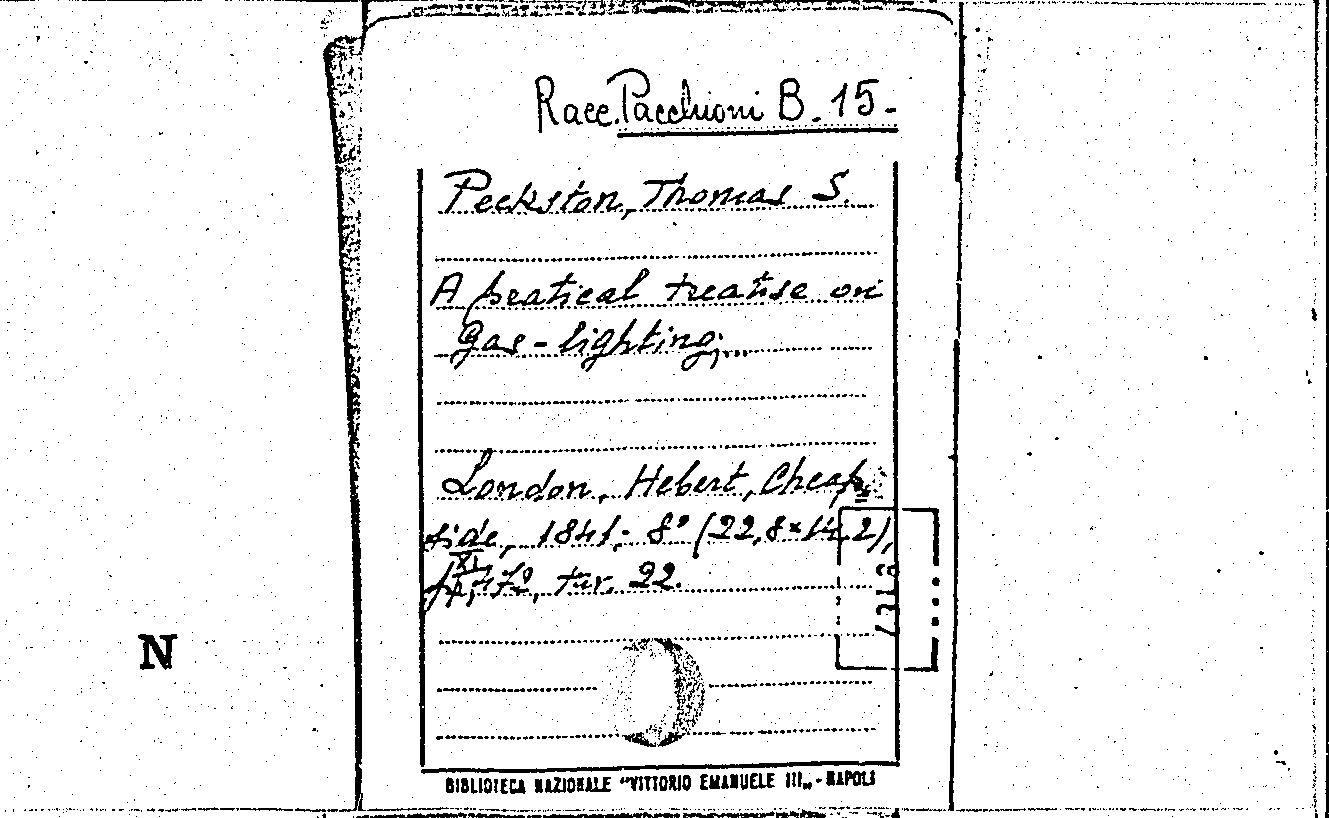 Racc. Pacchioni B. 15-
Peckston, Thomas S.
A pratical treatise on
gas-lighting;...
London, Hebert, Cheap
side, 1841; 8° (22,8×14,2),
tav. 22.
N
BIBLIOTECA NAZIONALE "VITTORIO EMANUELE III„ - NAPOLI